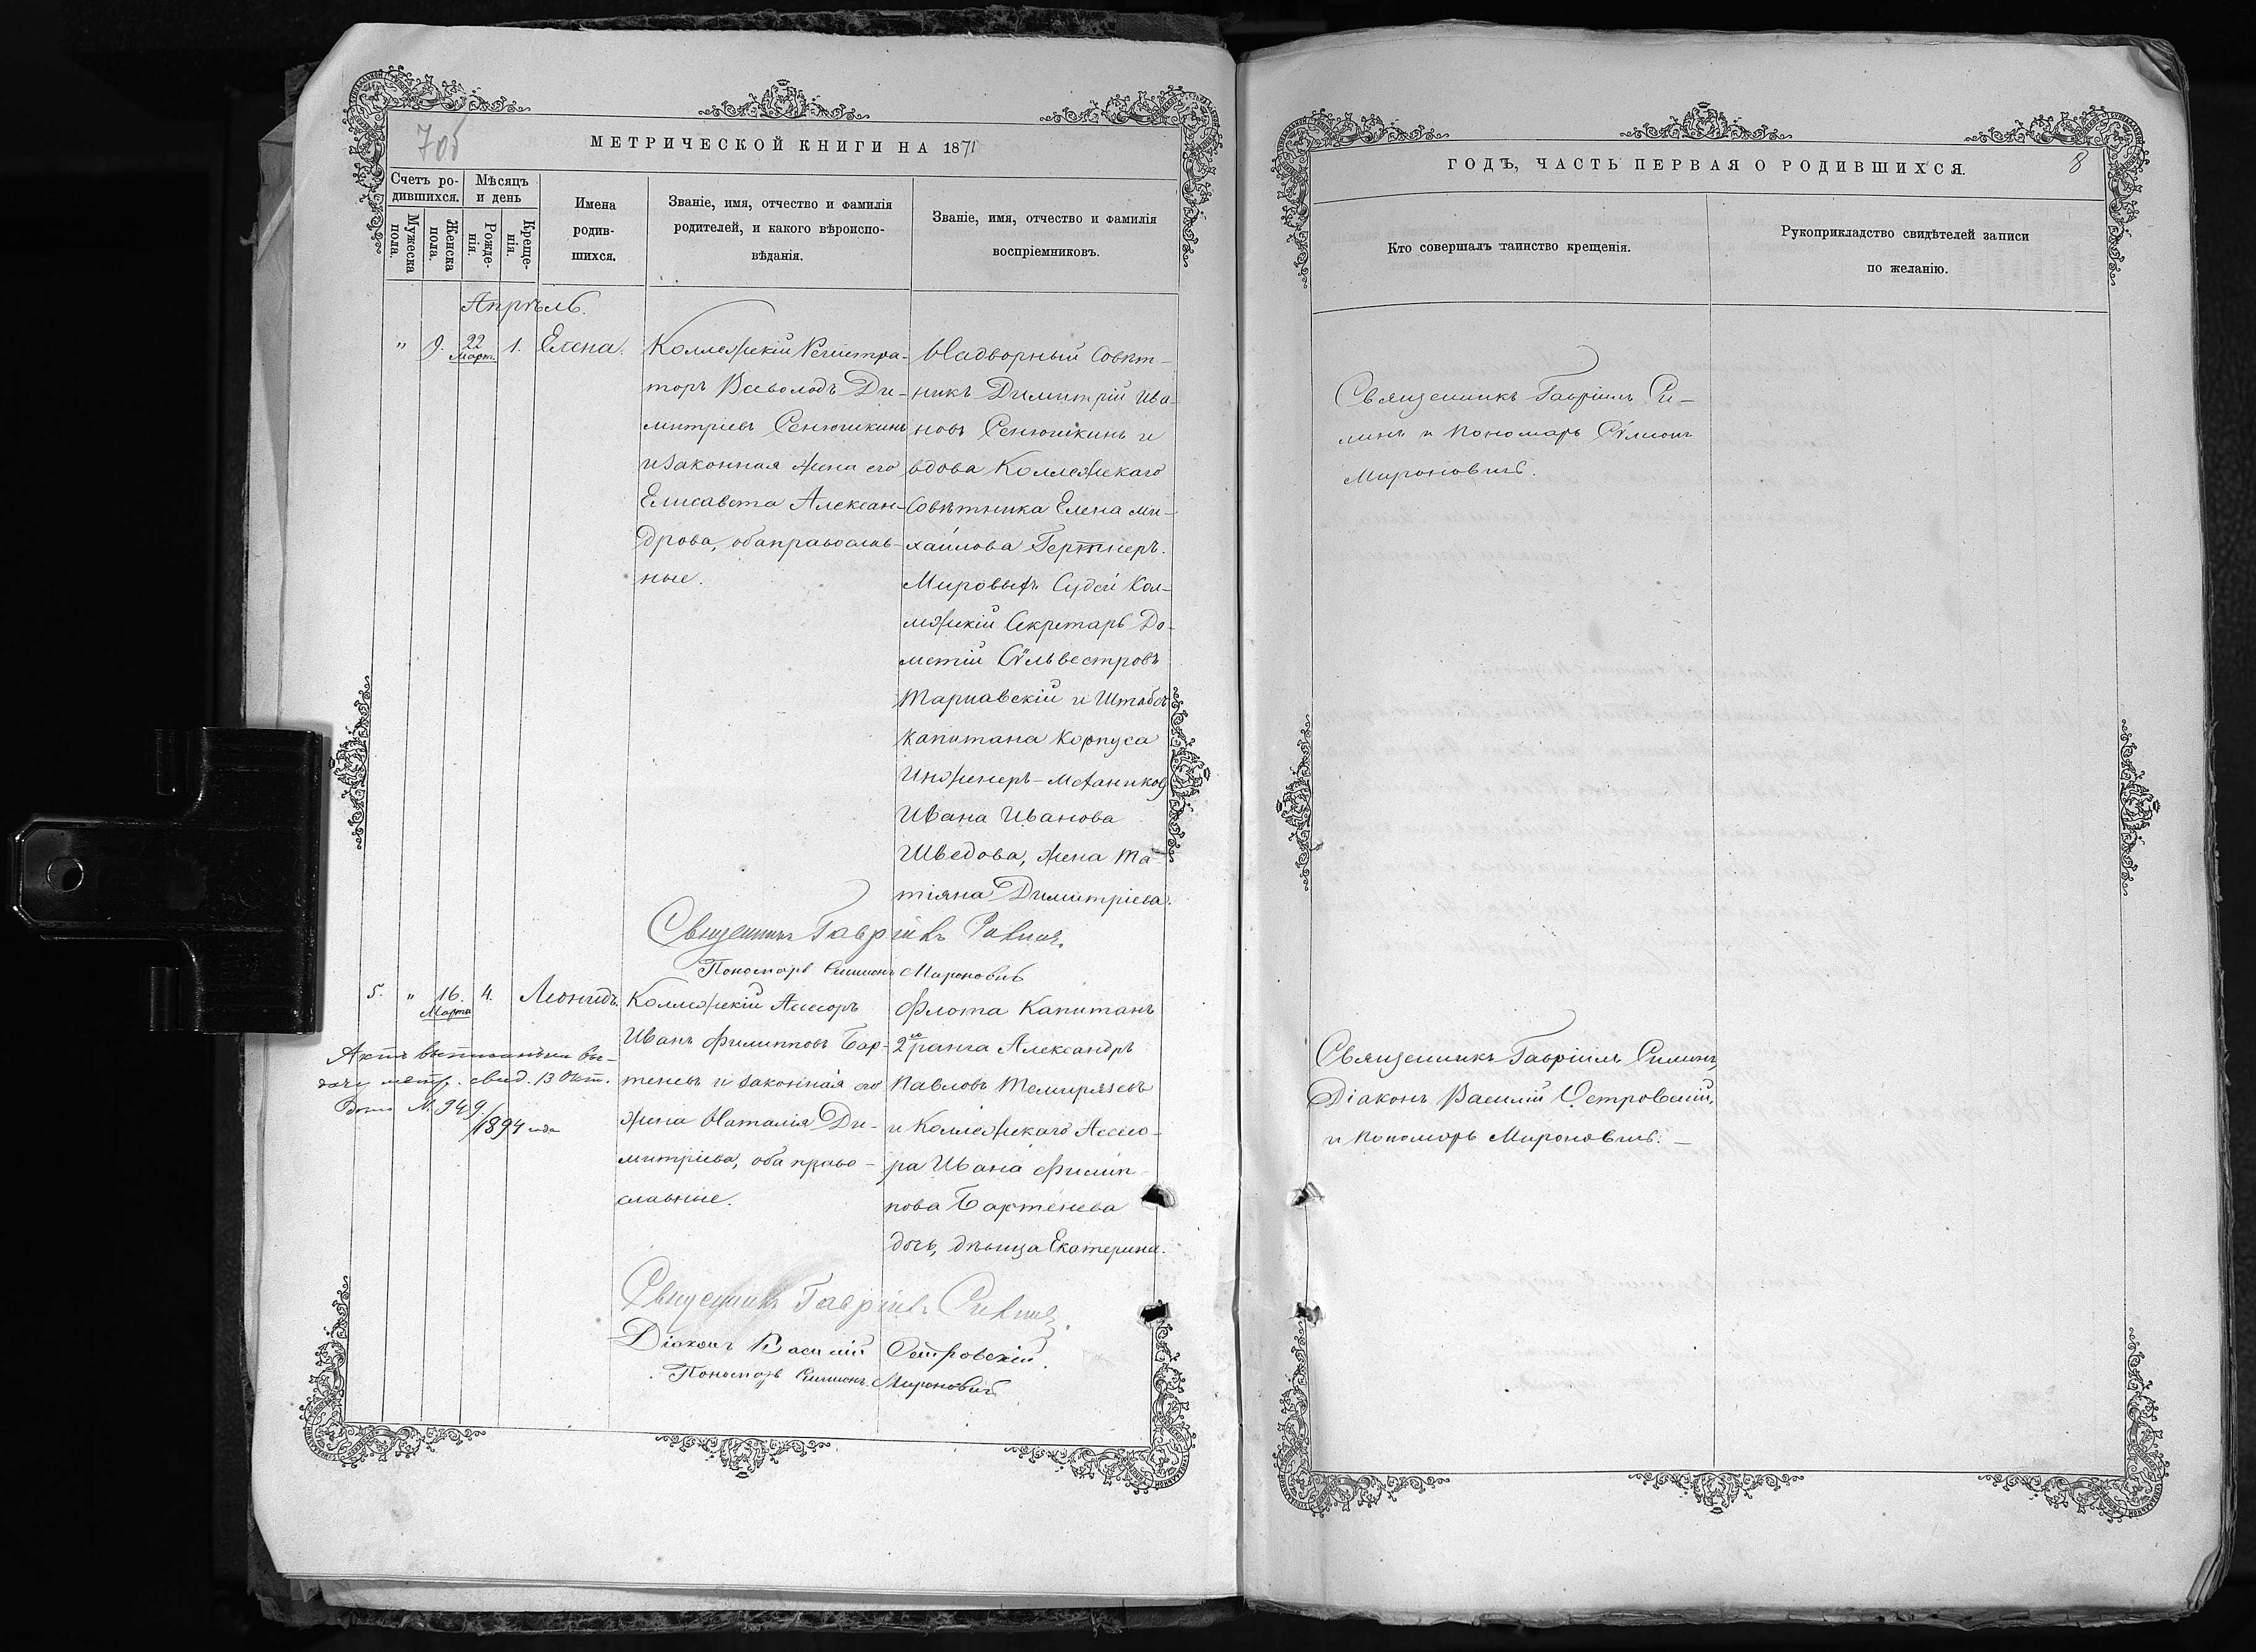 705
МЕТРИЧЕСКОЙ КНИГИ НА 1871
Счетъ ро-
дившихся.
Мѣсяцъ
и день
Мужеска
пола.
Женска
пола.
Рожде-
нія.
Креще-
нія.
Имена
родив-
шихся.
Званіе, имя, отчество и фамилія
родителей, и какого вѣроиспо-
вѣданія.
Званіе, имя, отчество и фамилія
воспріемниковъ.
Апрѣль.
" 9. 22 Март. 1. Елена.
Коллежскій Регистра-
торъ Всеволодъ Ди-
митріевъ Сенюшкинъ
и законная жена его
Елисавета Алексан-
дрова, оба православ-
ные.
Надворный Совѣт-
никъ Димитрій Ива-
новъ Сенюшкинъ и
вдова Коллежскаго
Совѣтника Елена Ми-
хайлова Гертнеръ.
Мировыхъ Судей Кол-
лежскій Секретарь До-
метій Сѵльвестровъ
Тарнавскій и Штабсъ
Капитана Корпуса
Инженеръ-Механиковъ
Ивана Иванова
Шведова, жена Та-
тіяна Димитріева.
Священникъ Гавріилъ
Пономарь Симеонъ Мироновичъ
5. " 16. Марта 4. Леонидъ.
Коллежскій Ассесоръ
Иванъ Филипповъ Бар-
теневъ и законная его
жена Наталія Ди-
митріева, оба право-
славные.
Флота Капитанъ
2го ранга Александръ
Павловъ Темирязевъ
и Коллежскаго Ассесо-
ра Ивана Филип-
пова Бартенева
дочь, дѣвица Екатерина.
13 Окт.
№. 349.
/1894 года
Священникъ Гавріилъ
Діаконъ Василій Островскій.
Пономарь Симеонъ Мироновичъ
ГОДЪ, ЧАСТЬ ПЕРВАЯ О РОДИВШИХСЯ.
8
Кто совершалъ таинство крещенія.
Рукоприкладство свидѣтелей записи
по желанію.
Священникъ Гавріилъ Си-
линъ и Пономарь Сѵмеонъ
Мироновичъ.
Священникъ Гавріилъ Силинъ,
Діаконъ Василій Островскій,
и Пономарь Мироновичъ. —